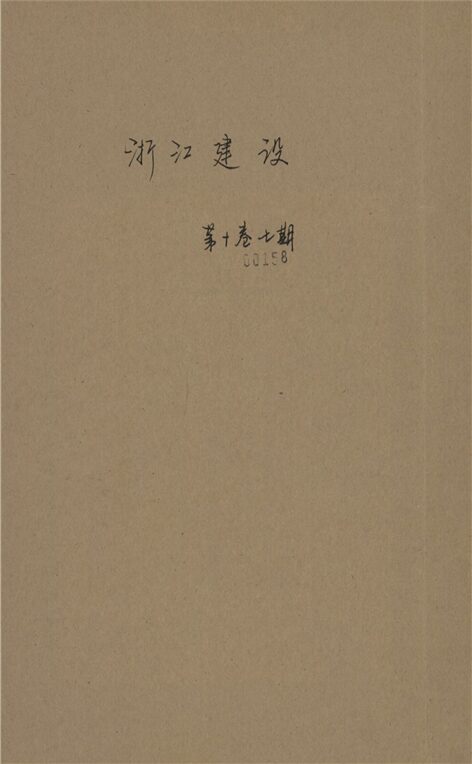 浙江建设
第十卷七期
00158